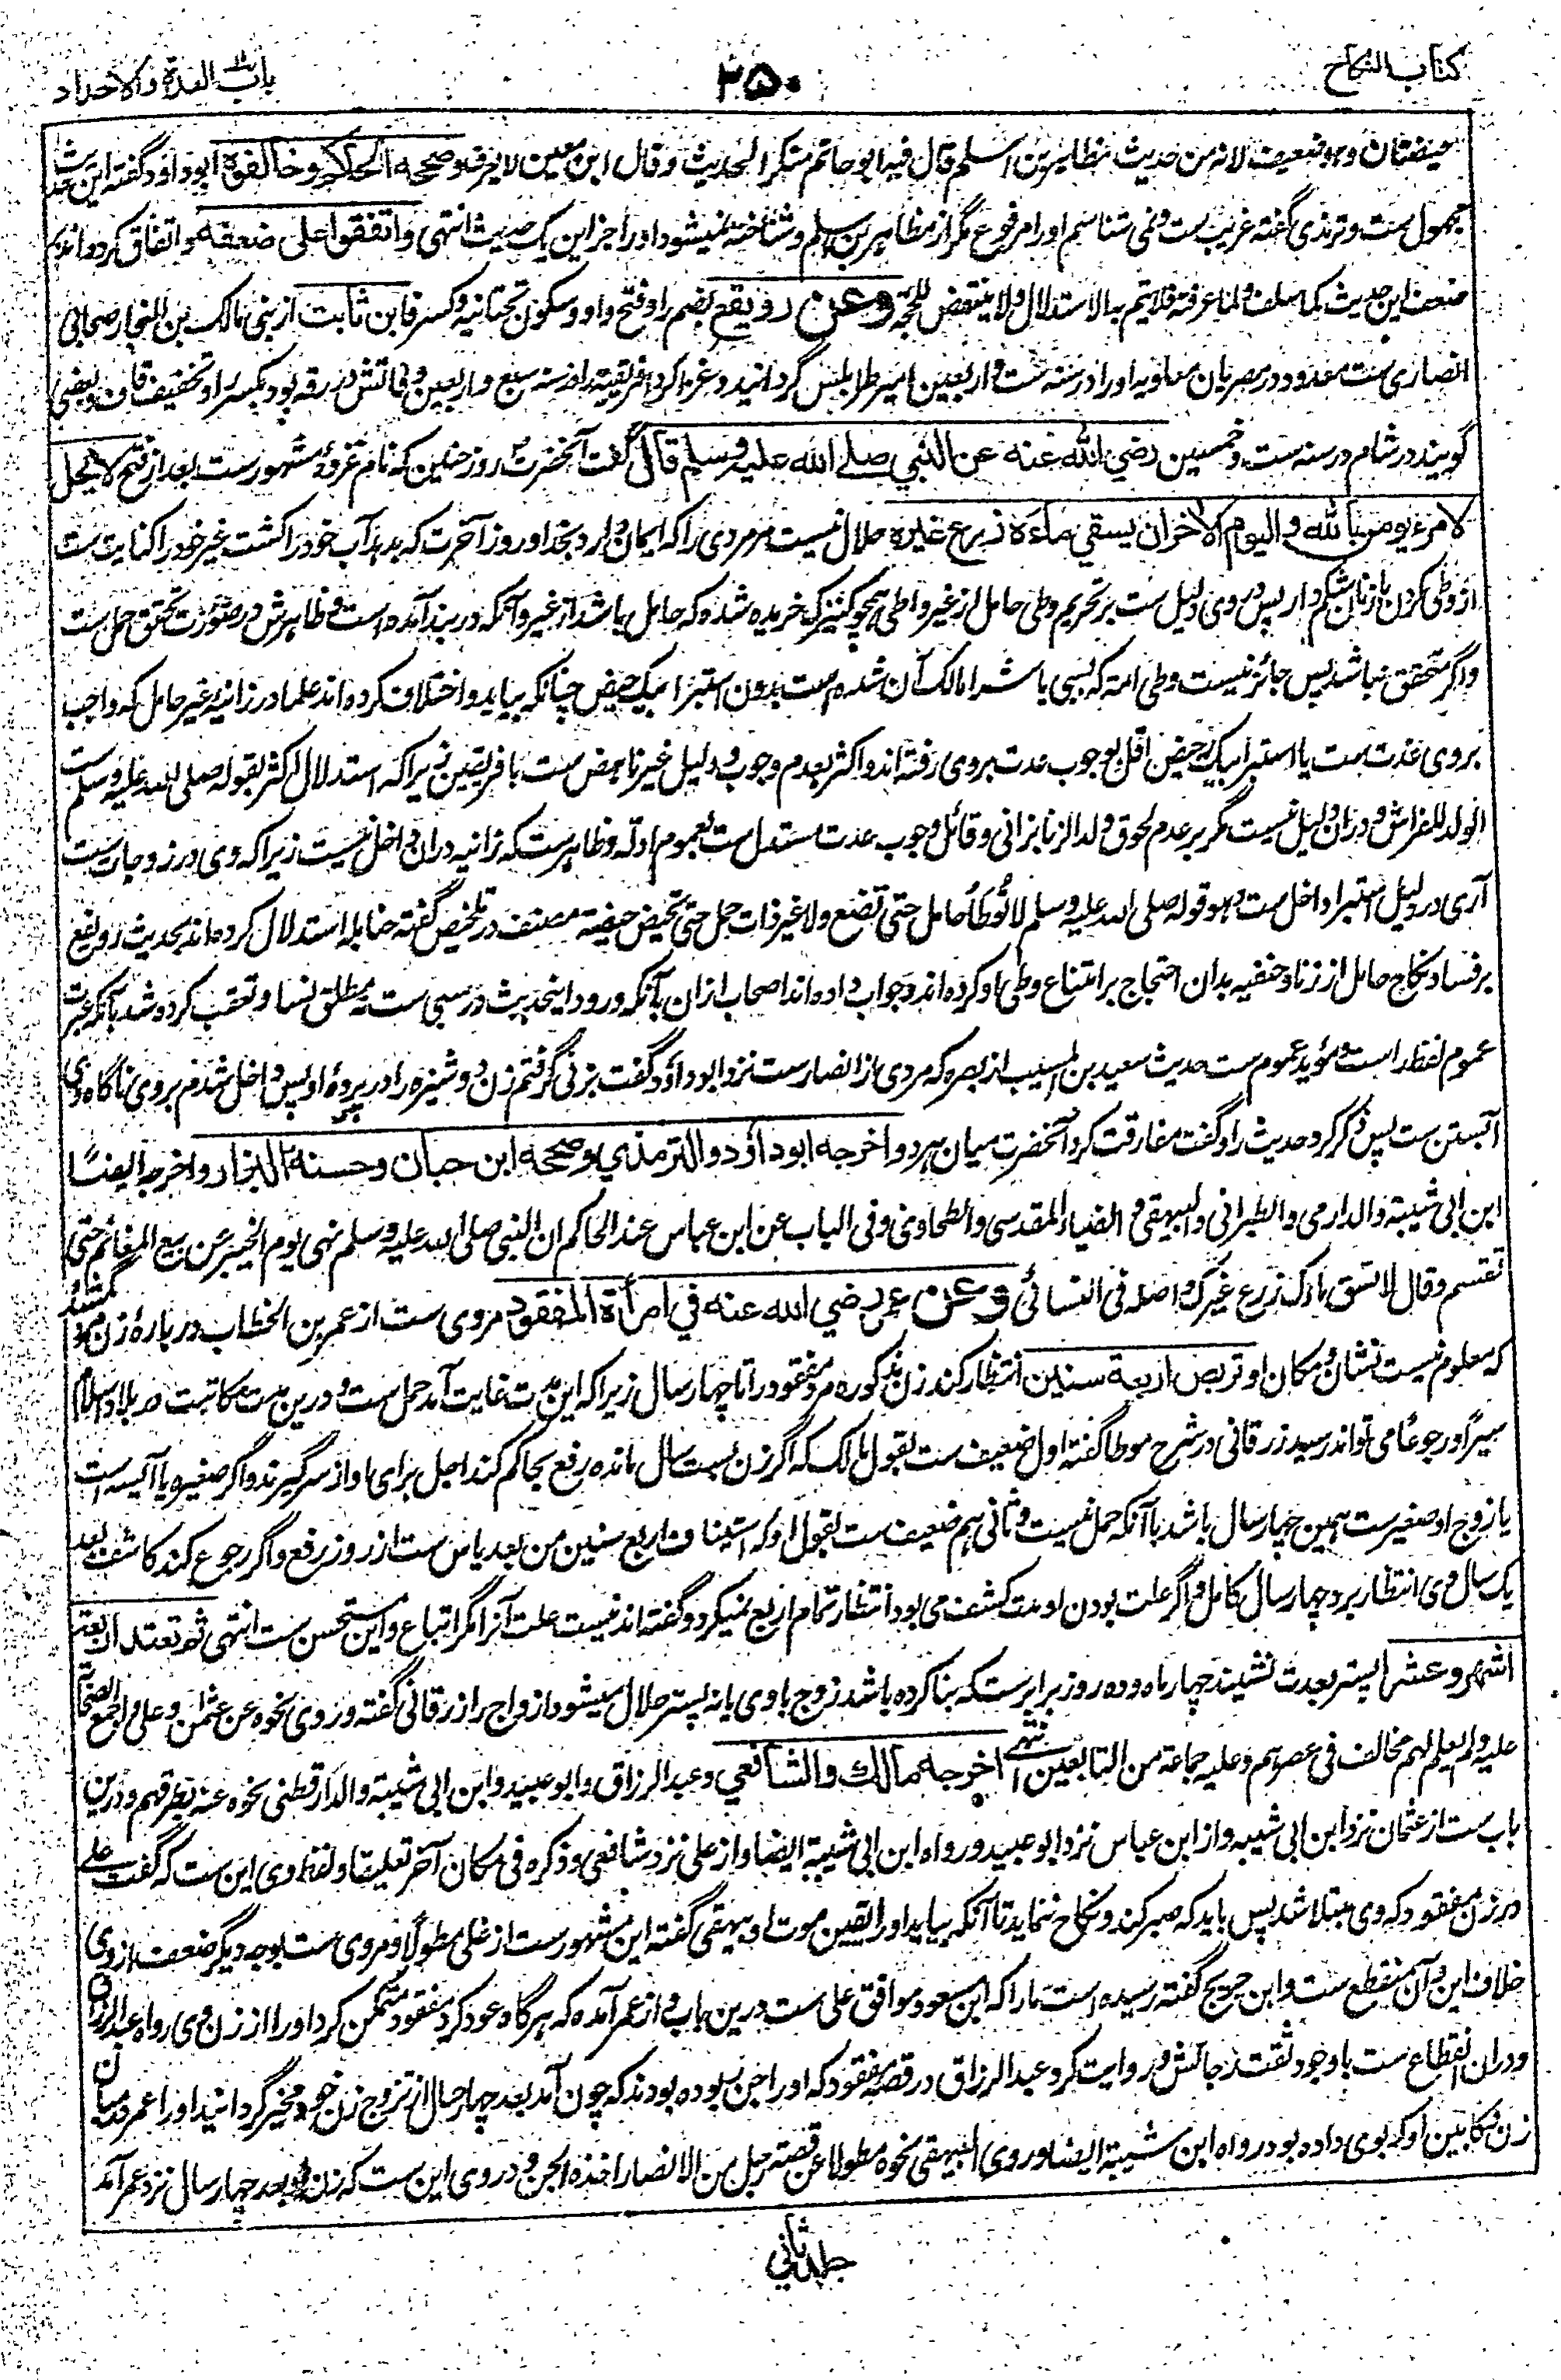 کتاب النکاح
۲۵۰
باب العدة والاحداد
حیضتان وهو ضعیف لانه من حدیث مظاہر بن اسلم قال فیه ابو حاتم منکر الحدیث وقال ابن معین لا یعرف وصححه الحاکم وخالفوه ابو داود گفته این حدیث
مجهول ست و ترمذی گفته غریب ست و نمی شناسیم او را مرفوع مگر از مظاہر بن اسلم و شناخته نمیشود او را جز این یک حدیث انتهی واتفقوا علی ضعفه و اتفاق کرده اند بر
ضعف این حدیث کما سلف ولما عرفته فلا یتم به الاستدلال ولا ینتهض للحجة وعن رویفع بضم را و فتح واو و سکون تحتانیه و کسر فا بن ثابت از بنی مالک بن النجار صحابی
انصاری ست معدود در مصریان معاویه او را در سنه ست و اربعین امیر طرابلس گردانید و غزا کرد افریقیه را در سنه سبع و اربعین و فاتش در برقه بود بکسر را و تخفیف قاف و بعضی
گویند در شام در سنه ست و خمسین رضي الله عنه عن النبي صلے الله علیه وسلم قال گفت آنحضرت روز حنین که نام غزوهٔ مشهورست بعد از فتح لا یحل
لامرء یومن بالله والیوم الاخر ان یسقي ماءه زرع غیره حلال نیست مر مردی را که ایمان دارد بخدا و روز آخرت که بدهد آب خود را کشت غیر خود را کنایت ست
از وطی کردن بازنان شکم دار پس در وی دلیل ست بر تحریم وطی حامل از غیر واطی همچو کنیزک خریده شده که حامل باشد از غیر و آنکه در بند آمده است و ظاہرش در صورت تحقق حمل ست
و اگر متحقق نباشد پس جائز نیست وطی امه که بسبی یا شرا مالک آن شده است بدون استبرا بیک حیض چنانکه بیاید و اختلاف کرده اند علما در زانیه غیر حامل که واجب
بروی عدت ست یا استبرا بیک حیض اقل بوجوب عدت بروی رفته اند و اکثر بعدم وجوب و دلیل غیر ناهض ست با فریقین زیرا که استدلال اکثر بقوله صلی الله علیه وسلم ست
الولد للفراش و دران دلیل نیست مگر بر عدم لحوق ولد الزنا بزانی و قائل وجوب عدت مستدل ست بعموم ادله و ظاہر ست که زانیه دران داخل نیست زیرا که وی در زوجات ست
آری در دلیل استبرا داخل ست و هو قوله صلی الله علیه وسلم لا توطأ حامل حتی تضع ولا غیر ذات حمل حتی تحیض حیضة مصنف در تلخیص گفته حنابله استدلال کرده اند بحدیث رویفع
بر فساد نکاح حامل از زنا و حنفیه بدان احتجاج بر امتناع وطی او کرده اند و جواب داده اند اصحاب ازان بآنکه ورود این حدیث در سبی ست نه مطلق نسا و تعقب کرده شد بآنکه عبرت
عموم لفظ راست و مؤید عموم ست حدیث سعید بن المسیب از بصره که مردی از انصار ست نزد ابو داؤد گفت بزنی گرفتم زن دوشیزه را در پردهٔ او پس داخل شدم بروی ناگاه وی
آبستن ست پس ذکر کرد حدیث را و گفت مفارقت کرد آنحضرت میان هر دو اخرجه ابو داؤد والترمذي وصححه ابن حبان وحسنه البزار واخرجه ایضًا
ابن ابی شیبة والدارمی والطبرانی والبیهقی والضیاء المقدسی والطحاوی وفی الباب عن ابن عباس عند الحاکم ان النبی صلی الله علیه وسلم نهی یوم الخیبر عن بیع المغانم حتی
تقسم وقال لا تسق ماءک زرع غیرک واصله فی النسائی وعن عمر رضي الله عنه في امرأة المفقود مروی ست از عمر بن الخطاب در بارهٔ زن مرد گمشده
که معلوم نیست نشان و مکان او تربص اربعة سنین انتظار کند زن مذکوره مرد مفقود را تا چهار سال زیرا که این مدت غایت آمد حمل ست و درین مدت مکاتبت در بلاد اسلام
سیرًا و رجوعًا می تواند رسید زرقانی در شرح موطا گفته اول ضعیف ست بقول مالک که اگر زن بست سال مانده رفع بحاکم کند اجل برای او از سر گیرند و اگر صغیره یا آیسه است
یا زوج او صغیر ست همین چهار سال باشد با آنکه حمل نیست و ثانی هم ضعیف ست بقول او که استیناف اربع سنین من بعد یاس ست از روز رفع و اگر رجوع کند کاشف بعد
یک سال وی انتظار برد چهار سال کامل و اگر علت بودن او مدت کشف می بود انتظار تمام اربع نمیکرد و گفته اند نیست علت آنرا مگر اتباع و این مستحسن ست انتهی ثم تعتد اربعة
اشهر وعشرا پستر بعدت نشیند چهار ماه و ده روز برابرست که بنا کرده باشد زوج با وی یا نه پستر حلال میشود ازواج را زرقانی گفته و روی نحوه عن عثمن وعلی واجمع الصحابة
علیه ولم یعلم لهم مخالف فی عصرهم وعلیه جماعة من التابعین انتهی اخرجه مالك والشافعي وعبد الرزاق وابو عبید وابن ابی شیبة والدارقطنی نحوه عنه بطرقهم و درین
باب ست از عثمان نزد ابن ابی شیبه و از ابن عباس نزد ابو عبید ورواه ابن ابی شیبة ایضا و از علی نزد شافعی وذکره فی مکان آخر تعلیقا و لفظ وی این ست که گفت علی
در زن مفقود که وی مبتلا شد پس باید که صبر کند و نکاح ننماید تا آنکه بیاید او را یقین موت او بیهقی گفته این مشهور ست از علی مطولًا و مروی ست بوجه دیگر ضعف از وی
خلاف این و آن منقطع ست و ابن جریج گفته رسیده است مارا که ابن مسعود موافق علی ست درین باب و از عمر آمده که هرگاه عود کرد مفقود متمکن کرد او را از زن وی رواه عبد الرزاق
و دران انقطاع ست با وجود ثقت رجالش و روایت کرد عبد الرزاق در قصهٔ مفقود که او را جن ربوده بودند که چون آمد بعد چهار سال از تزوج زن خود مخیر گردانید او را عمر میان
زن و کابین او که بوی داده بود رواه ابن شیبة ایضا وروی البیهقی نحوه مطولا عن قصة رجل من الانصار اخذه الجن و در وی این ست که زن او بعد چهار سال نزد عمر آمد
جلد ثانی